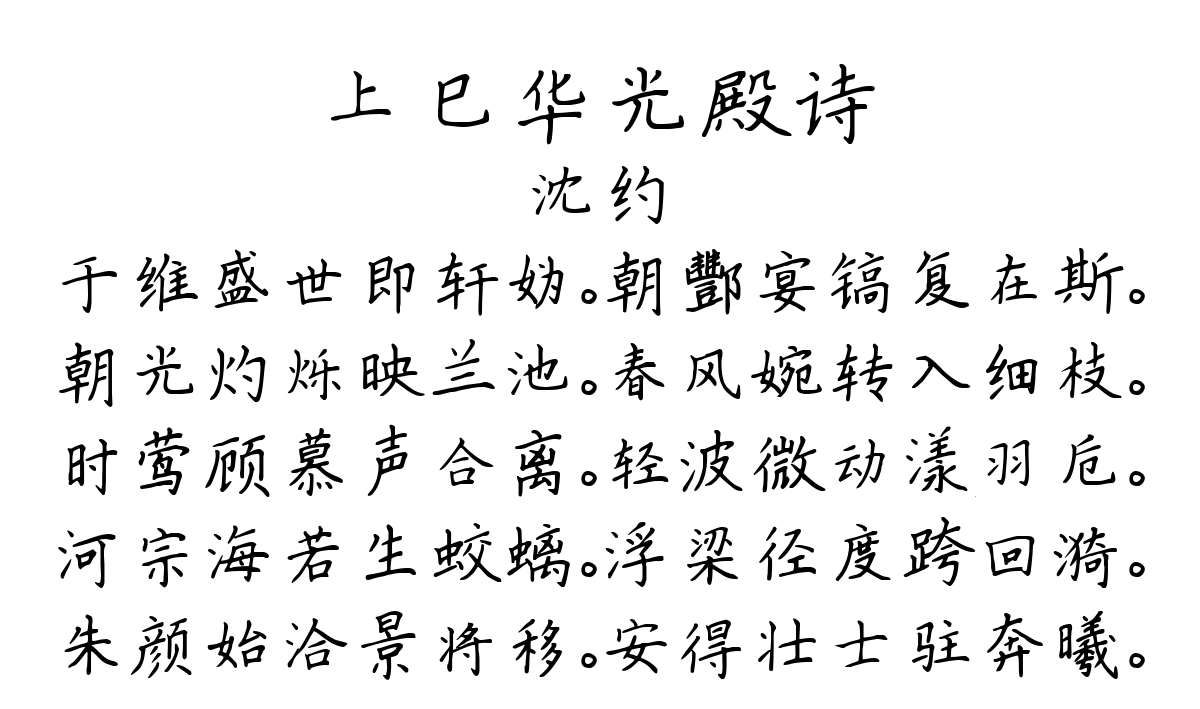 上巳华光殿诗
沈约
于维盛世即轩妫。朝酆宴镐复在斯。
朝光灼烁映兰池。春风婉转入细枝。
时莺顾慕声合离。轻波微动漾羽卮。
河宗海若生蛟螭。浮梁径度跨回漪。
朱颜始洽景将移。安得壮士驻奔曦。